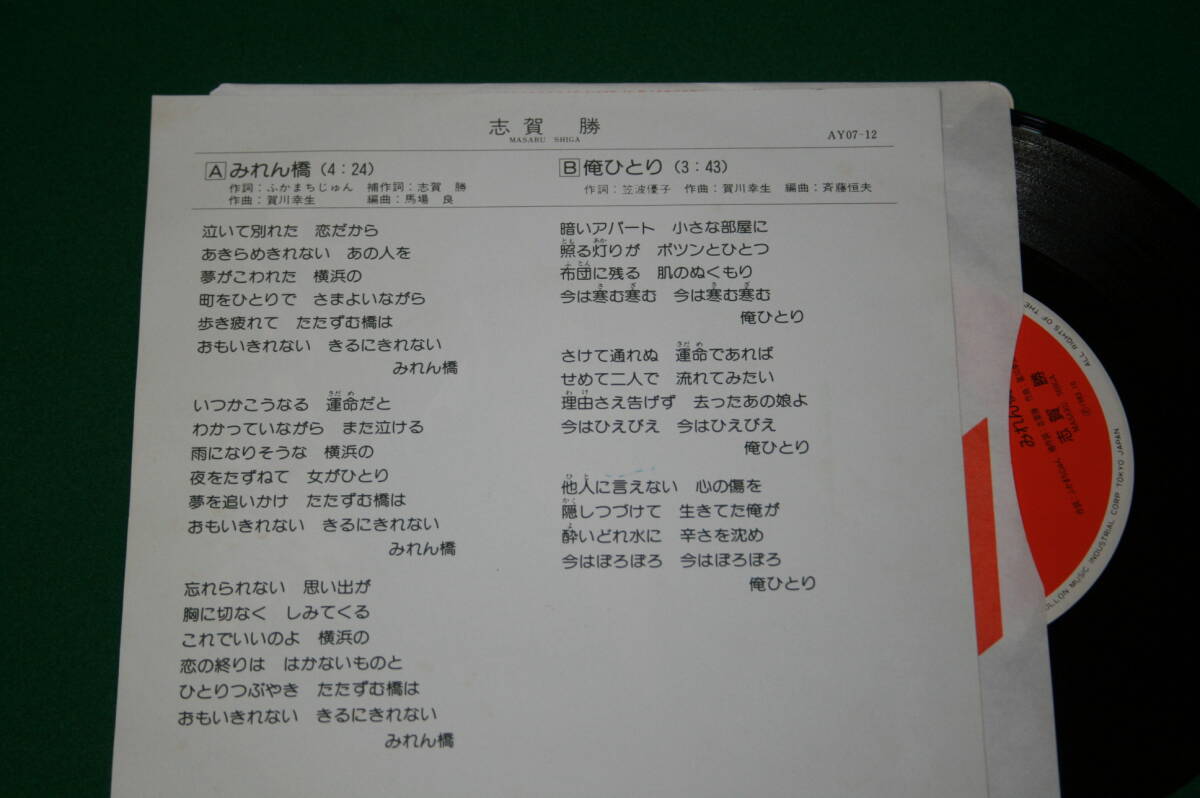 志賀 勝
MASARU SHIGA
AY07-12
A みれん橋(4:24)
作詞:ふかまちじゅん 補作詞:志賀 勝
作曲:賀川幸生 編曲:馬場 良
泣いて別れた 恋だから
あきらめきれない あの人を
夢がこわれた 横浜の
町をひとりで さまよいながら
歩き疲れて たたずむ橋は
おもいきれない きるにきれない
みれん橋
いつかこうなる 運命だと
さだめ
わかっていながら また泣ける
雨になりそうな 横浜の
夜をたずねて 女がひとり
夢を追いかけ たたずむ橋は
おもいきれない きるにきれない
みれん橋
忘れられない 思い出が
胸に切なく しみてくる
これでいいのよ 横浜の
恋の終りは はかないものと
ひとりつぶやき たたずむ橋は
おもいきれない きるにきれない
みれん橋
B 俺ひとり(3:43)
作詞:笠波優子 作曲:賀川幸生 編曲:斉藤恒夫
暗いアパート 小さな部屋に
とも あか
照る灯りが ポツンとひとつ
ふとん
布団に残る 肌のぬくもり
さ ざ さ ざ
今は寒む寒む 今は寒む寒む
俺ひとり
さだめ
さけて通れぬ 運命であれば
せめて二人で 流れてみたい
わけ
理由さえ告げず 去ったあの娘よ
今はひえびえ 今はひえびえ
俺ひとり
ひと
他人に言えない 心の傷を
かく
隠しつづけて 生きてた俺が
よ
酔いどれ水に 辛さを沈め
今はぼろぼろ 今はぼろぼろ
俺ひとり
ALL RIGHTS OF THE
みれん
志賀 勝
MASARU SHIGA
MUSIC INDUSTRIAL CORP. TOKYO JAPAN